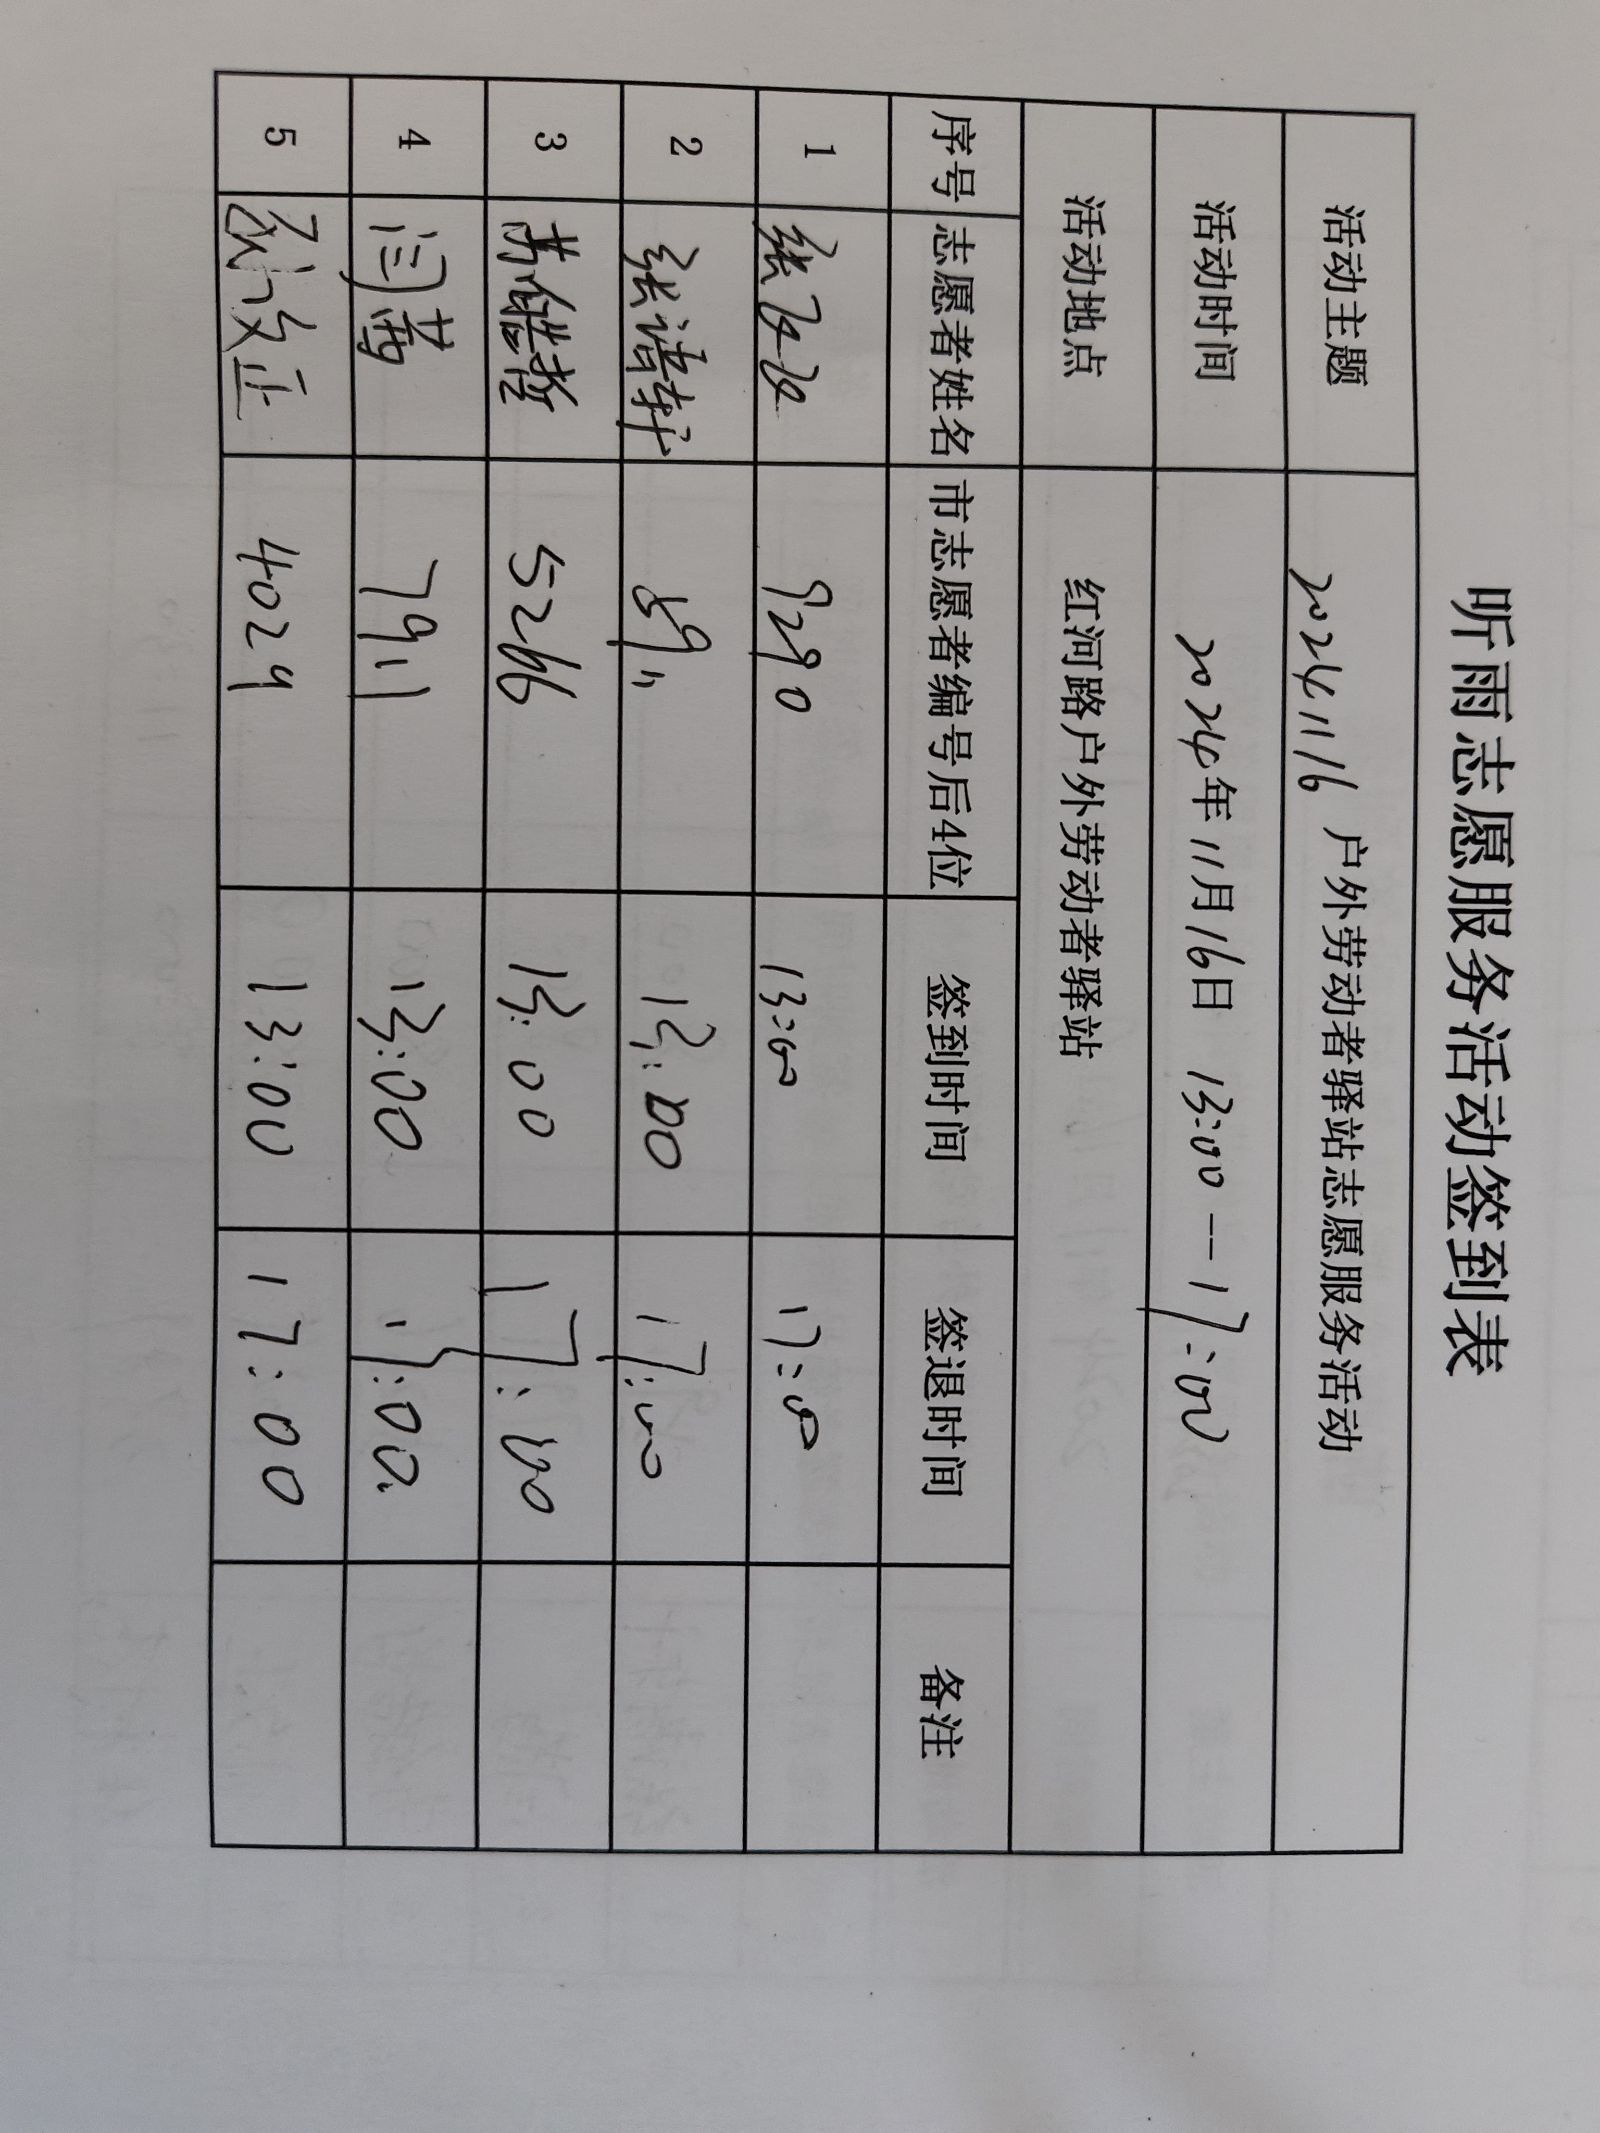 听雨志愿服务活动签到表
活动主题 20241116 户外劳动者驿站志愿服务活动
活动时间 2024年11月16日 13:00--17:00
活动地点 红河路户外劳动者驿站
序号 志愿者姓名 市志愿者编号后4位 签到时间 签退时间 备注
1 张 9290 13:00 17:00
2 张语轩 8911 13:00 17:00
3 5266 13:00 17:00
4 闫茜 7911 13:00 17:00
5 文正 4029 13:00 17:00